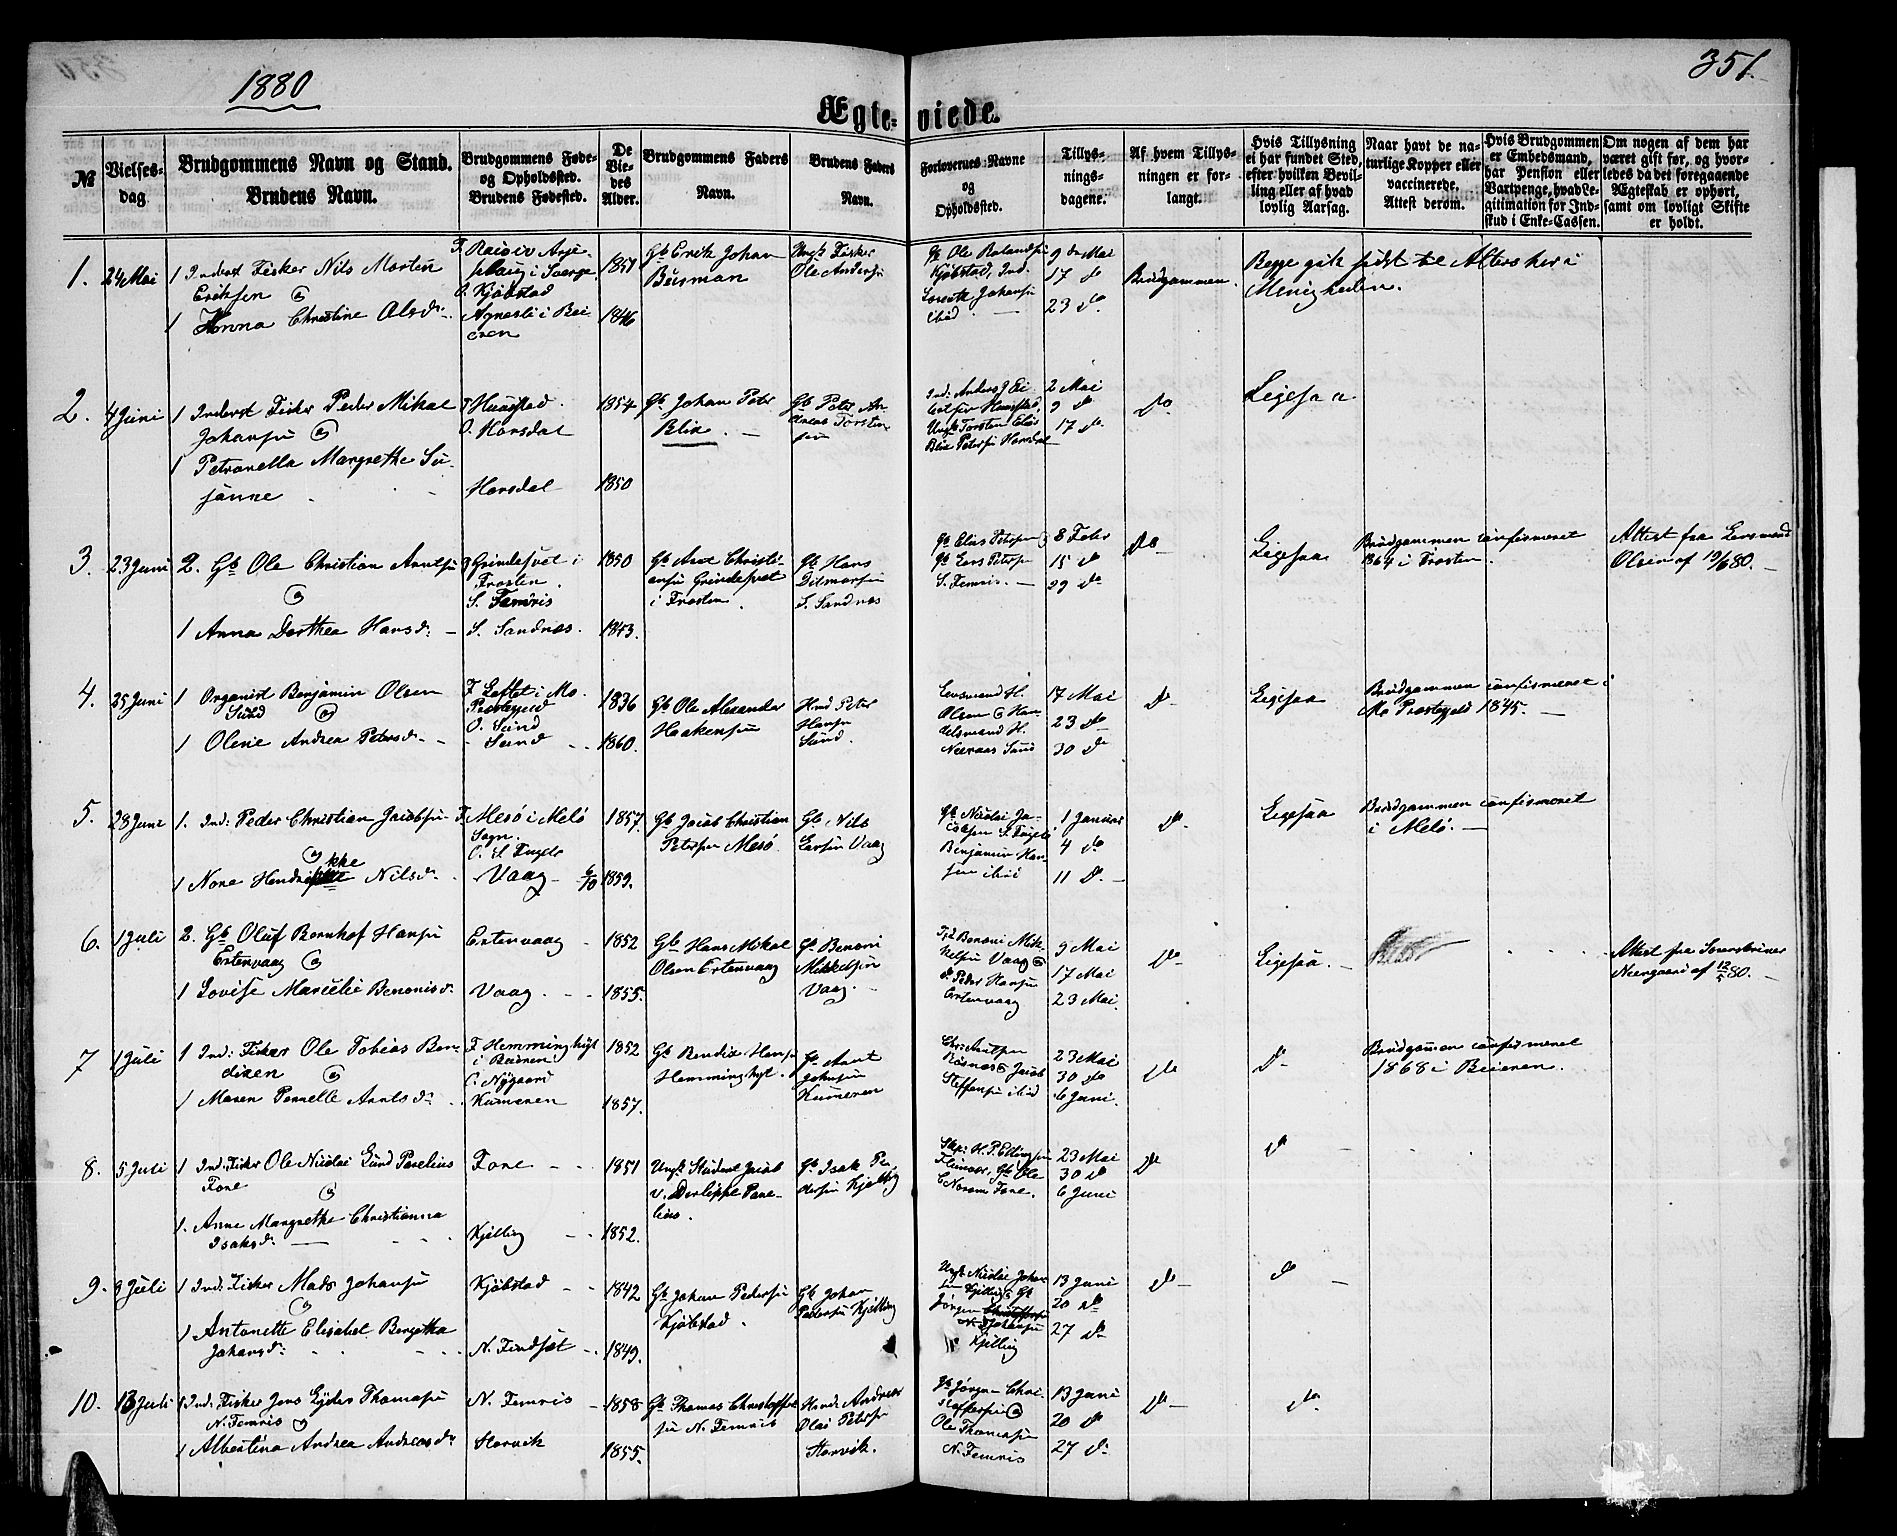 1880
351
Ægte-viede.
№
Vielses-
dag
Brudgommens Navn og Stand.
Brudens Navn.
Brudgommens Føde-
og Opholdssted.
Brudens Fødested.
De
Vie-
des
Alder.
Brudgommens Faders
Navn.
Brudens Faders
Navn.
Forlovernes Navne
og
Opholdssted.
Tillys-
nings-
dagene.
Af hvem Tillys-
ningen er for-
langt.
Hvis Tillysning
ei har fundet Sted,
efter hvilken Bevil-
ling eller af hvad
lovlig Aarsag.
Naar havt de na-
turlige Kopper eller
vaccinerede.
Attest derom.
Hvis Brudgommen
er Embedsmand,
har Pension eller
Vartpenge, hvad Le-
gitimation for Ind-
skud i Enke-Cassen.
Om nogen af dem har
været gift før, og hvor-
ledes da det foregaaende
Ægteskab er ophørt,
samt om lovligt Skifte
er holdt.
1. 24 Mai
1 Inderst Fisker Nils Morten
Eriksen
1 Hanna Christine Olsd.
O. Kjøbstad
Agnesli i Bei-
eren
1846
Gb Erik Johan
Burman
Ungk Fisker
Ole Andersen
Kjøbstad, Ind.
Lorentz Johansen
ibid
9de Mai
17 do
23 do
Brudgommen.
Begge gik sidst til Alters her i
Menigheden.
2. 4 Juni
1 Inderst Fisker Peder Mikal
Johansen
1 Petronella Margrethe Su-
sanne
O. Horsdal
Horsdal
1854
1850
Gb Johan Peter
Blix
Gb Peter An-
dreas Torsten-
sen
2 Mai
9 do
17 do
do
Ligesaa
3. 23 Juni
2. Gb Ole Christian Arntsen
1 Anna Dorthea Hansd.
F Grindesvet i
Frosten.
S. Femris
S. Sandnes.
1850
1843.
Gb Arnt Christi-
ansen Grindesvet
i Frosten.
Gb Hans
Ditmarsen
S. Sandnes
Gb Elias Petersen
Gb Lars Petersen
S. Femris
8 Febr
15 do
22 do
do
Ligesaa
Brudgommen confirmeret
1864 i Frosten.
Attest fra Lensmand
Olsen af 19/6 80.
4. 25 Juni
1 Organist Benjamin Olsen
Sund
1 Oline Andrea Petersd.
F Leftet i Mo
Præstegjeld
O. Sund
Sund
1836
1860.
Gb Ole Alexander
Haakensen
Hmd Peter
Hansen
Sund.
Lensmand H.
Olsen & Han-
delsmand H.
Neeraas Sund
17 Mai
23 do
30 do
do
Ligesaa
Brudgommen confirmeret i
Mo Præstegjeld 1845.
5. 28 Juni
1. Ind: Peder Christian Jacobsen
1 Nore Hendrikke Nilsd.
F. Mesø i Melø
Sogn.
O. S. Fugle
Vaag
1857.
6/10 1859.
Gb Jacob Christian
Petersen Mesø
Gb. Nils
Larsen Vaag
Gb Nicolai Ja-
cobsen S. Fugle
Benjamin Han-
sen ibid
1 Januar
4 do
11 do
do
Ligesaa
Brudgommen confirmeret
i Melø.
6. 1 Juli
2. Gb Oluf Bernhof Hansen
Ertenvaag
1 Lovise Marselie Benonisd.
Ertenvaag
Vaag.
1852
1855.
Gb Hans Mikal
Olsen Ertenvaag
Gb Benoni
Mikkelsen
Vaag.
Benoni Mik-
kelsen Vaag &
do Peder Hansen
Ertenvaag
9 Mai
17 Mai
23 Mai
do
Ligesaa.
Attest fra Sorenskriver
Neergaard af 12/6 80.
7 1 Juli
1 Ind: Fisker Ole Tobias Ben-
dixen
1 Maren Pernelle Arntsd.
F Hemminghyt
i Beieren
O. Nygaard
Kumeren
1852
1857.
Gb Bendix Hansen
Hemminghyt.
Gb Arnt
Johnsen
Kumeren
Chr: Arntsen
Bøsnes & Jacob
Steffensen ibid
23 Mai
30 do
6 Juni.
do
do
Brudgommen confirmeret
1868 i Beieren.
8. 5 Juli
1 Ind: Fisker Ole Nicolai Lund Parelius
Fore
1. Anne Margrethe Christianna
Isaksd.
Fore
Kjelling
1851
1852.
Ungk Student Jacob
v. Derlippe Pare-
lius.
Gb Isak Pe-
dersen Kjelling
Fleinvær, Gb Ole
23 Mai
30 do
6 Juni
do
do
9. 9 Juli
1 Ind: Fisker Mads Johansen
1 Antonette Elisabet Bergitha
Johansd.
Kjøbstad
N. Findset
1842
1849.
Gb Johan Pedersen
Kjøbstad.
Gb Johan
Pedersen Kjelling
Ungk Nicolai Johan-
sen Kjelling & Gb
Jørgen Christoffersen
N. Johansen
Kjelling
13 Juni
20 do
27 do
do
do
10. 13 Juli
1 Ind: Fisker Jens Lyder Thomasen
N. Femris
1 Albertina Andrea Andreasd.
N. Femris
Storvik
1858
1855.
Gb Thomas Christoffer-
sen N. Femris
Hmd: Andreas
Olai Petersen
Storvik.
Gb Jørgen Chri-
stoffersen &
Ole Thomasen
N. Femris
13 Juni
20 do
27 do
do
do